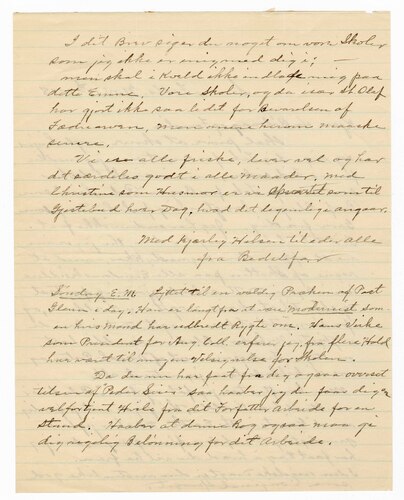 I dit Brev siger du noget om vore Skoler
som jeg ikke er enig med dig i; —
men skal i Kveld ikke indlade mig paa
dette Emne. Vore Skoler, og da især St Olaf
har gjort ikke saa lidet for bevarelsen af
Fædrearven. Mere herom maaske
senere.
Vi er alle friske, lever vel og har
det særdeles godt i alle Maader. Med
Christine som Husmor er vi som til
Gjestebud hver Dag, hvad det legemlige angaar.
Med kjærlig Hilsen til eder alle
fra Bedstefar
Søndag E.M. Lyttet til en veldig Præken af Past
Glenn i dag. Han er langt fra at være modernist som
en hos Mand har udbredt Rygte om. Hans Virke
som President for Aug. Coll. erfarer jeg fra flere Hold
har været til megen Velsignelse for Skolen.
Da du nu har faaet fra dig ogsaa oversæt
telsen af "Peder Seier" saa haaber jeg du faar dig en
velfortjent Hvile fra dit Forfatter Arbeide for en
Stund. Haaber at denne bog ogsaa maa gi
dig rigelig Belønning for dit Arbeide.